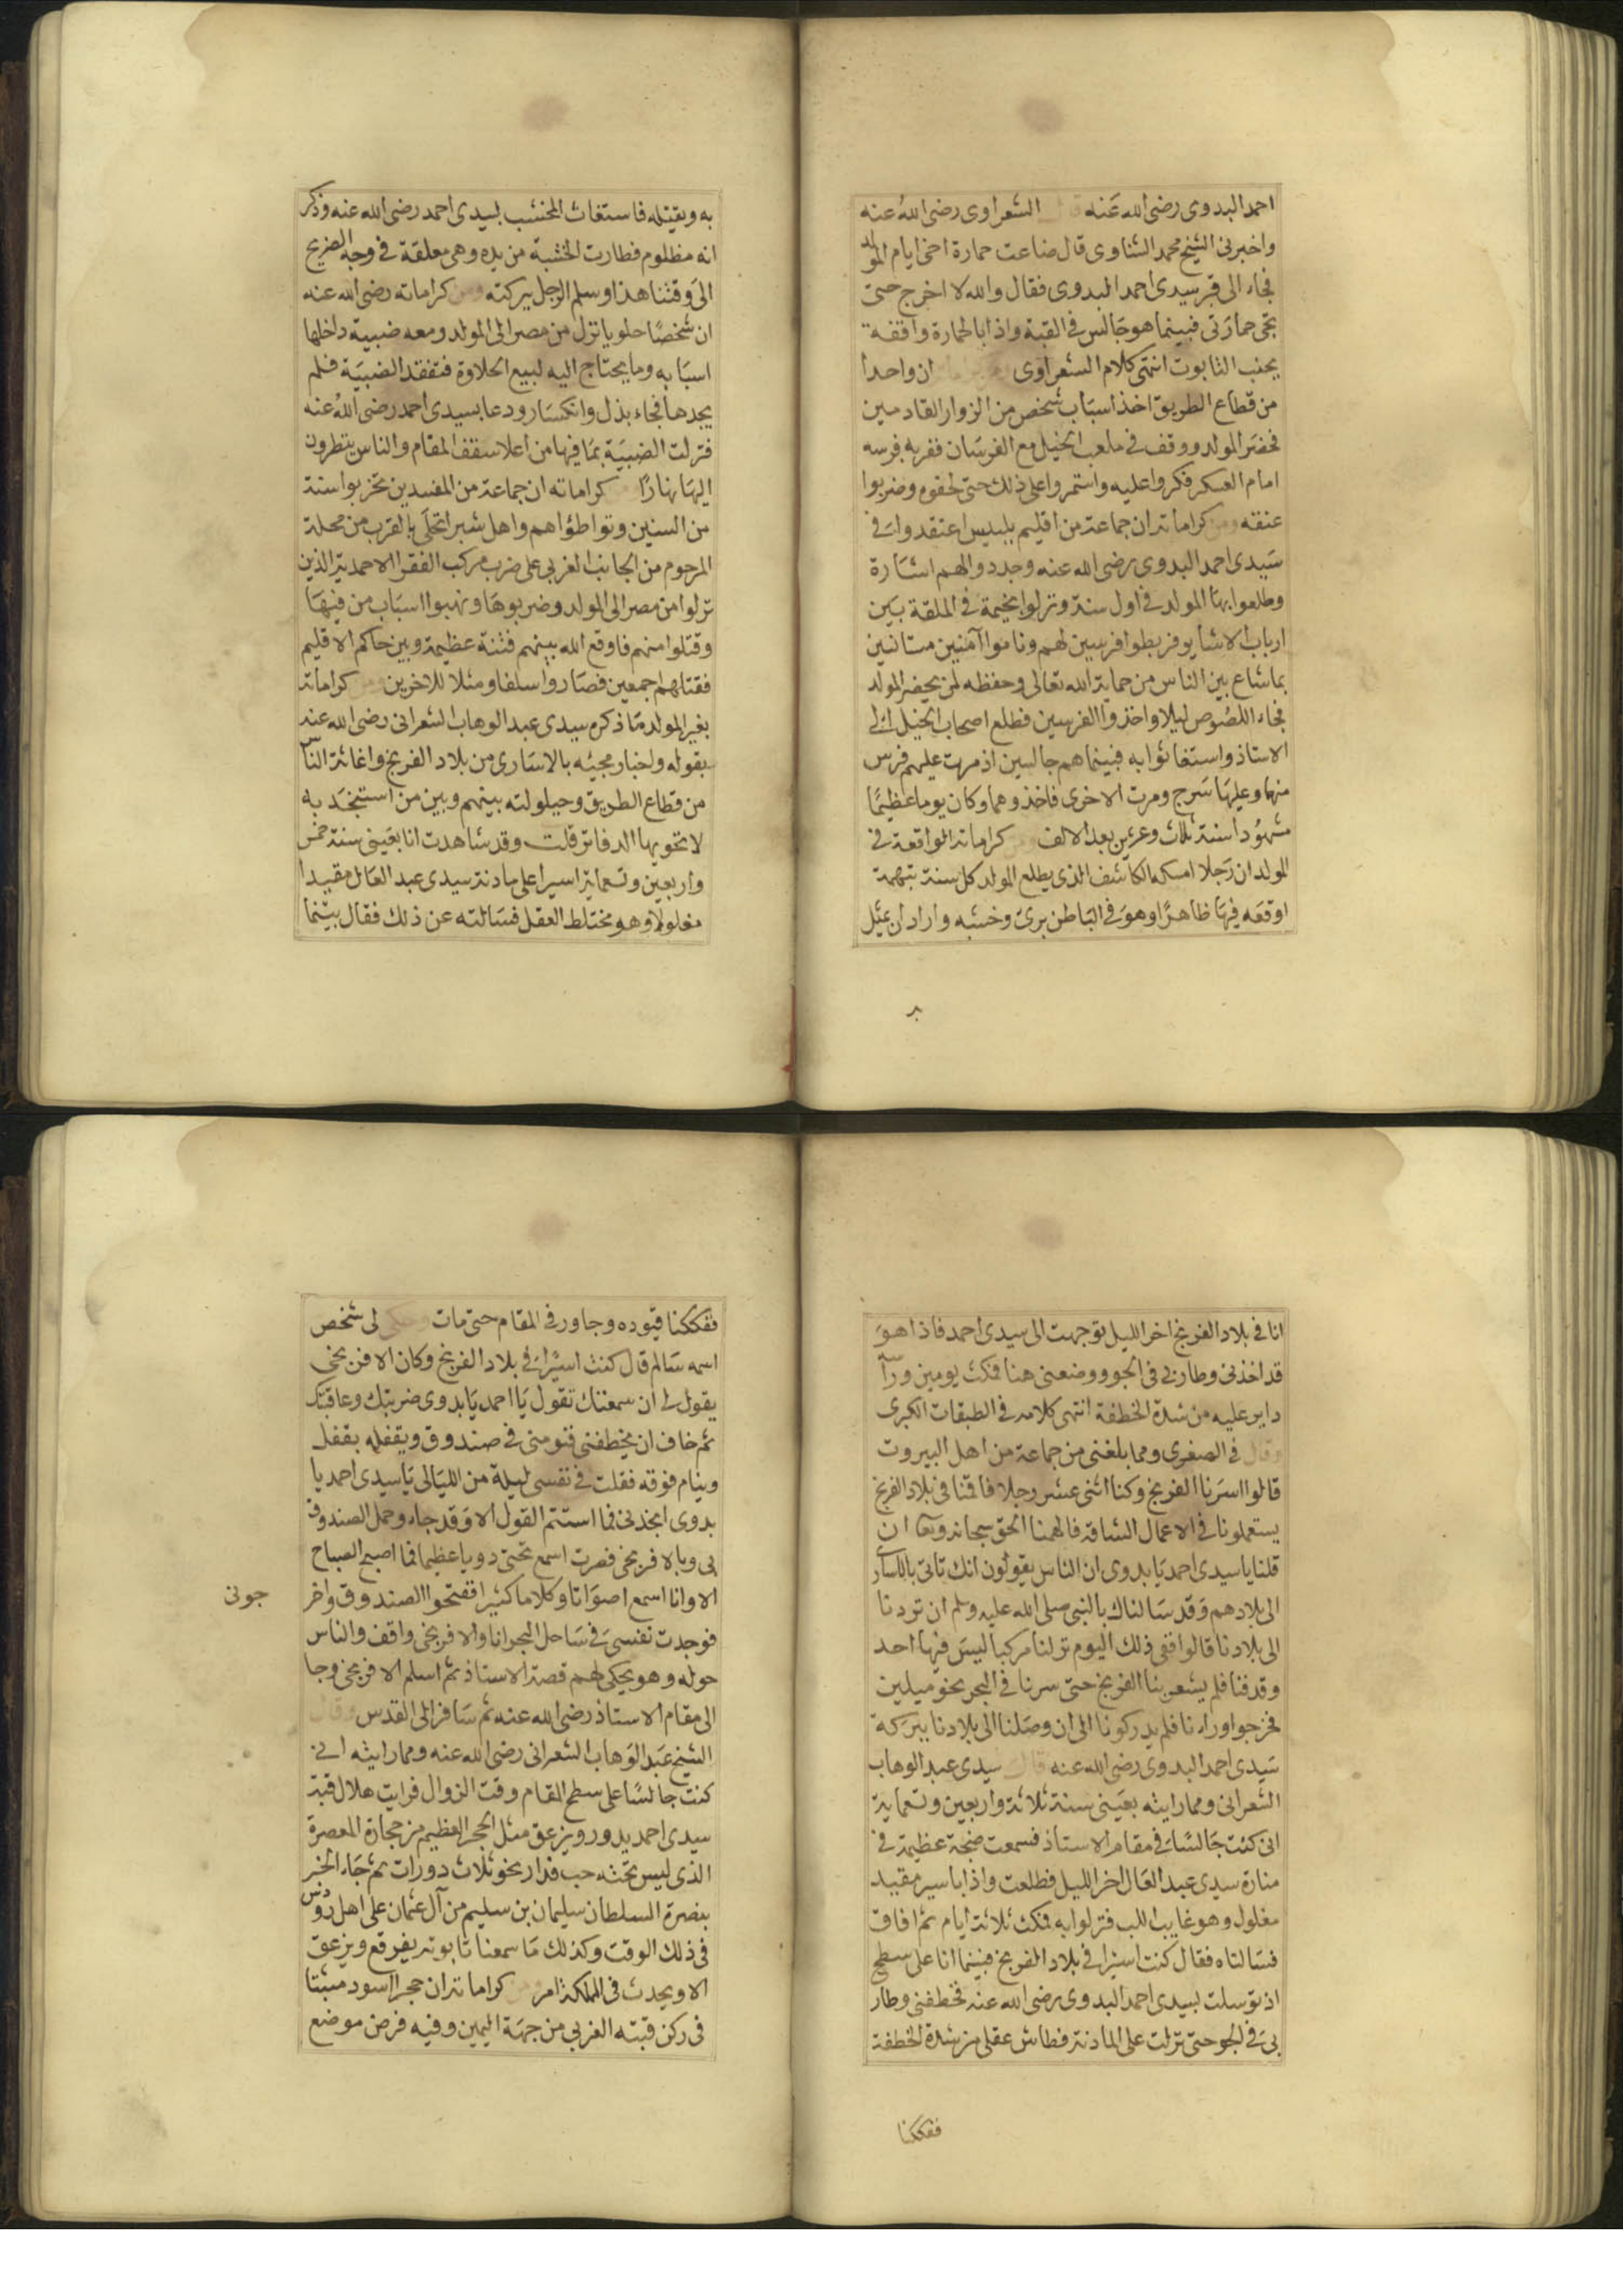 احمد البدوى رضى الله عنه قال الشعراوى رضى الله عنه
واخبرنى الشيخ محمد الشناوى قال ضاعت حمارة اخى ايام المولد
فجاء الى قبر سيدى احمد البدوى فقال والله لا اخرج حتى
تجى حمارتى فبينما هو جالس فى القبة واذا بالحمارة واقفة
بجنب التابوت انتهى كلام الشعراوى ان واحدا
من قطاع الطريق اخذ اسباب شخص من الزوار القادمين
فحضر المولد ووقف فى ملعب الخيل مع الفرسان ففر به فرسه
امام العسكر فكروا عليه واستمروا على ذلك حتى لحقوه وضربوا
عنقه ومن كراماته ان جماعة من اقليم بلبيس اعتقدوا فى
سيدى احمد البدوى رضى الله عنه وجددوا لهم اشارة
وطلعوا بها المولد فى اول سنة ونزلوا بخيمة فى الملقة بين
ارباب الاشاير فربطوا فرسين لهم وناموا آمنين مستانسين
بما شاع بين الناس من حماية الله تعالى وحفظه لمن يحضر المولد
فجاء اللصوص ليلا واخذوا الفرسين فطلع اصحاب الخيل الى
الاستاذ واستغاثوا به فبينما هم جالسين اذ مرت عليهم فرس
منهما وعليها سرج ومرت الاخرى فاخذوهما وكان يوما عظيما
مشهودا سنة ثلاث وعشرين بعد الالف ومن كراماته الواقعة فى
المولد ان رجلا امسكه الكاشف الذى يطلع المولد كل سنة بتهمة
اوقعه فيها ظاهرا وهو فى الباطن برئ وخشبه واراد ان يمثل
بر
به ويقتله فاستغاث المخشب لسيدى احمد رضى الله عنه وذكر
انه مظلوم فطارت الخشبة من يده وهى معلقة فى وجه الضريح
الى وقتنا هذا وسلم الرجل ببركته ومن كراماته رضى الله عنه
ان شخصا حلويا نزل من مصر الى المولد ومعه ضبية داخلها
اسبابه وما يحتاج اليه لبيع الحلاوة فتفقد الضبية فلم
يجدها فجاء بذل وانكسار ودعا بسيدى احمد رضى الله عنه
فنزلت الضبية بما فيها من اعلا سقف المقام والناس ينظرون
اليها نهارا ومن كراماته ان جماعة من المفسدين تحزبوا سنة
من السنين وتواطؤا هم واهل شبر اتحلى بالقرب من محلة
المرحوم من الجانب الغربى على ضرب مركب الفقرا الاحمدية الذين
نزلوا من مصر الى المولد وضربوها ونهبوا اسباب من فيها
وقتلوا منهم فاوقع الله بينهم فتنة عظيمة وبين حاكم الاقليم
فقتلهم اجمعين فصاروا سلفا ومثلا للاخرين ومن كراماته
بغير المولد ما ذكره سيدى عبد الوهاب الشعرانى رضى الله عنه
بقوله واخبار مجيئه بالاسارى من بلاد الفرنج واغاثة الناس
من قطاع الطريق وحيلولته بينهم وبين من استنجد به
لا تحويها الدفاتر قلت وقد شاهدت انا بعينى سنة خمس
واربعين وتسعماية اسيرا على مادنة سيدى عبد العال مقيدا
مغلولا وهو مختلط العقل فسالته عن ذلك فقال بينما
انا فى بلاد الفرنج اخر الليل توجهت الى سيدى احمد فاذا هو
قد اخذنى وطار بى فى الجو ووضعنى هنا فمكث يومين وراسه
داير عليه من شدة الخطفة انتهى كلامه فى الطبقات الكبرى
وقال فى الصغرى ومما بلغنى من جماعة من اهل البيروت
قالوا اسرنا الفرنج وكنا اثنى عشر رجلا فاقمنا فى بلاد الفرنج
يستعملونا فى الاعمال الشاقة فالهمنا الحق سبحانه وتعا ان
قلنا يا سيدى احمد يا بدوى ان الناس يقولون انك تاتى بالاسارى
الى بلادهم وقد سالناك بالنبى صلى الله عليه وسلم ان تردنا
الى بلادنا قالوا ففى ذلك اليوم نزلنا مركبا ليس فيها احد
وقدفنا فلم يشعر بنا الفرنج حتى سرنا فى البحر نحو ميلين
فخرجوا وراءنا فلم يدركونا الى ان وصلنا الى بلادنا ببركة
سيدى احمد البدوى رضى الله عنه قال سيدى عبد الوهاب
الشعرانى ومما رايته بعينى سنة ثلاثة واربعين وتسعماية
انى كنت جالسا فى مقام الاستاذ فسمعت ضجة عظيمة فى
منارة سيدى عبد العال اخر الليل فطلعت واذا باسير مقيد
مغلول وهو غايب اللب فنزلوا به فمكث ثلاثة ايام ثم افاق
فسالناه فقال كنت اسيرا فى بلاد الفرنج فبينما انا على سطح
اذ توسلت بسيدى احمد البدوى رضى الله عنه فخطفنى وطار
بى فى الجو حتى نزلت على المادنة فطاش عقلى من شدة الخطفة
ففككنا
ففككنا قيوده وجاور فى المقام حتى مات وحكى لى شخص
اسمه سالم قال كنت اسيرا فى بلاد الفرنج وكان الافرنجى
يقول لى ان سمعتك تقول يا احمد يا بدوى ضربتك وعاقبتك
ثم خاف ان يخطفنى فنومنى فى صندوق ويقفله بقفل
وينام فوقه فقلت فى نفسى ليلة من الليالى يا سيدى احمد يا
بدوى انجدنى فما استتم القول الا وقد جاء وحمل الصندوق
بى وبالافرنجى فصرت اسمع تحتى دويا عظيما فما اصبح الصباح
الا وانا اسمع اصواتا وكلاما كثيرا ففتحوا الصندوق واخر
جونى
فوجدت نفسى فى ساحل البحر انا والافرنجى واقف والناس
حوله وهو يحكى لهم قصة الاستاذ ثم اسلم الافرنجى وجا
الى مقام الاستاذ رضى الله عنه ثم سافر الى القدس وقال
الشيخ عبد الوهاب الشعرانى رضى الله عنه ومما رايته انى
كنت جالسا على سطح المقام وقت الزوال فرايت هلال قبة
سيدى احمد يدور ويزعق مثل الحجر العظيم من حجارة المعصرة
الذى ليس تحته حب فدار نحو ثلاث دورات ثم جاء الخبر
بنصرة السلطان سليمان بن سليم من آل عثمان على اهل رودس
فى ذلك الوقت وكذلك ما سمعنا تابوته يفرقع ويزعق
الا ويحدث فى المملكة امر ومن كراماته ان حجرا اسود مثبتا
فى ركن قبته الغربى من جهة اليمين وفيه فرض موضع